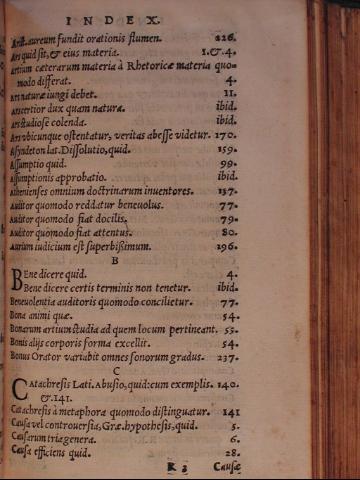 INDEX.
Arist. aureum fundit orationis flumen. 226.
Ars quid sit, & eius materia. 1.&4.
Artium cæterarum materia à Rhetoricæ materia quo-
modo differat. 4.
Ars naturæ iungi debet. 11.
Ars certior dux quam natura. ibid.
Ars studiose colenda. ibid.
Ars vbicunque ostentatur, veritas abesse videtur. 170.
Asyndeton lat. Dissolutio, quid. 159.
Assumptio quid. 99.
Assumptionis approbatio. ibid.
Athenienses omnium doctrinarum inuentores. 137.
Auditor quomodo reddatur beneuolus. 77.
Auditor quomodo fiat docilis. 79.
Auditor quomodo fiat attentus. 80.
Aurium iudicium est superbissimum. 196.
B
Bene dicere quid. 4.
Bene dicere certis terminis non tenetur. ibid.
Beneuolentia auditoris quomodo concilietur. 77.
Bona animi quæ. 54.
Bonarum artium studia ad quem locum pertineant. 55.
Bonis alijs corporis forma excellit. 54.
Bonus Orator variabit omnes sonorum gradus. 237.
C
Catachresis Lati. Abusio, quid: cum exemplis. 140.
&.141.
Catachresis à metaphora quomodo distinguatur. 141
Causa vel controuersia, Græ. hypothesis, quid. 5.
Causarum tria genera. 6.
Causa efficiens quid. 28.
K 3 Causæ